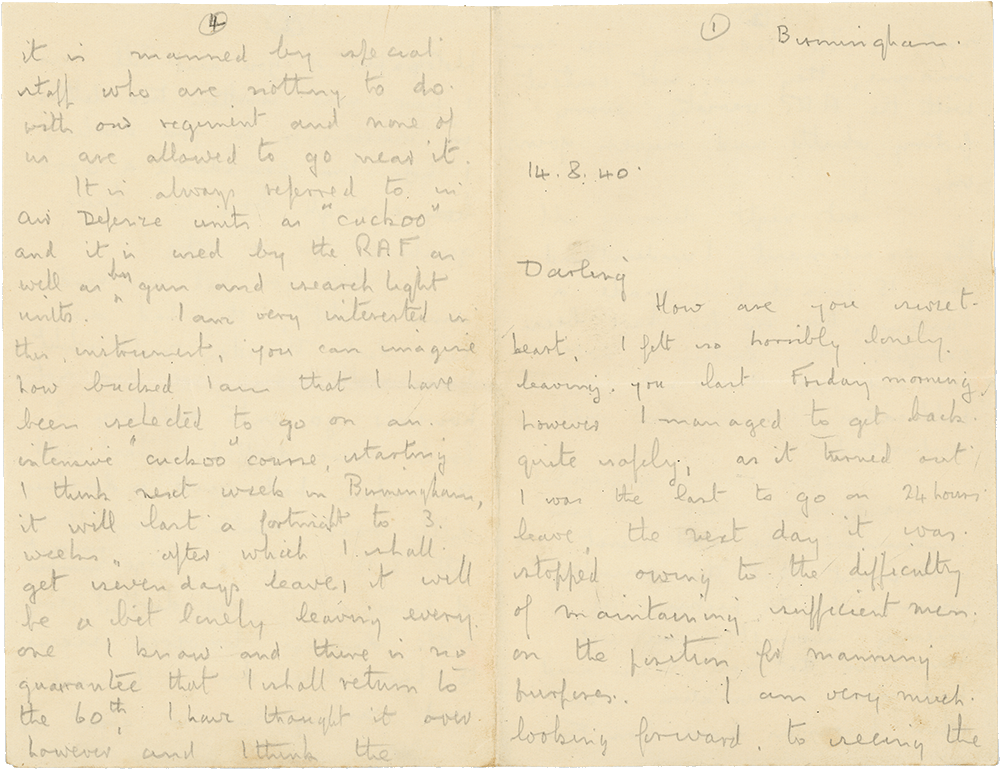 4
it is manned by special
staff who are nothing to do
with our regiment and none of
us are allowed to go near it.
It is always referred to in
Air Defence units as "cuckoo"
and it is used by the RAF as
well as by gun and search light
units. I am very interested in
this instrument, you can imagine
how bucked I am that I have
been selected to go on an
intensive "cuckoo" course, starting
I think next week in Birmingham,
it will last a fortnight to 3
weeks, after which I shall
get seven days leave, it will
be a bit lonely leaving every
one I know and there is no
guarrantee that I shall return to
the 60th, I have thought it over
however and I think the
1
Birmingham.
14.8.40.
Darling
How are you sweet-
heart, I felt so horribly lonely
leaving you last Friday morning,
however I managed to get back
quite safely, as it turned out
I was the last to go on 24 hours
leave, the next day it was
stopped owing to the difficulty
of maintaining sufficient men
on the position for manning
purposes. I am very much
looking forward to seeing the